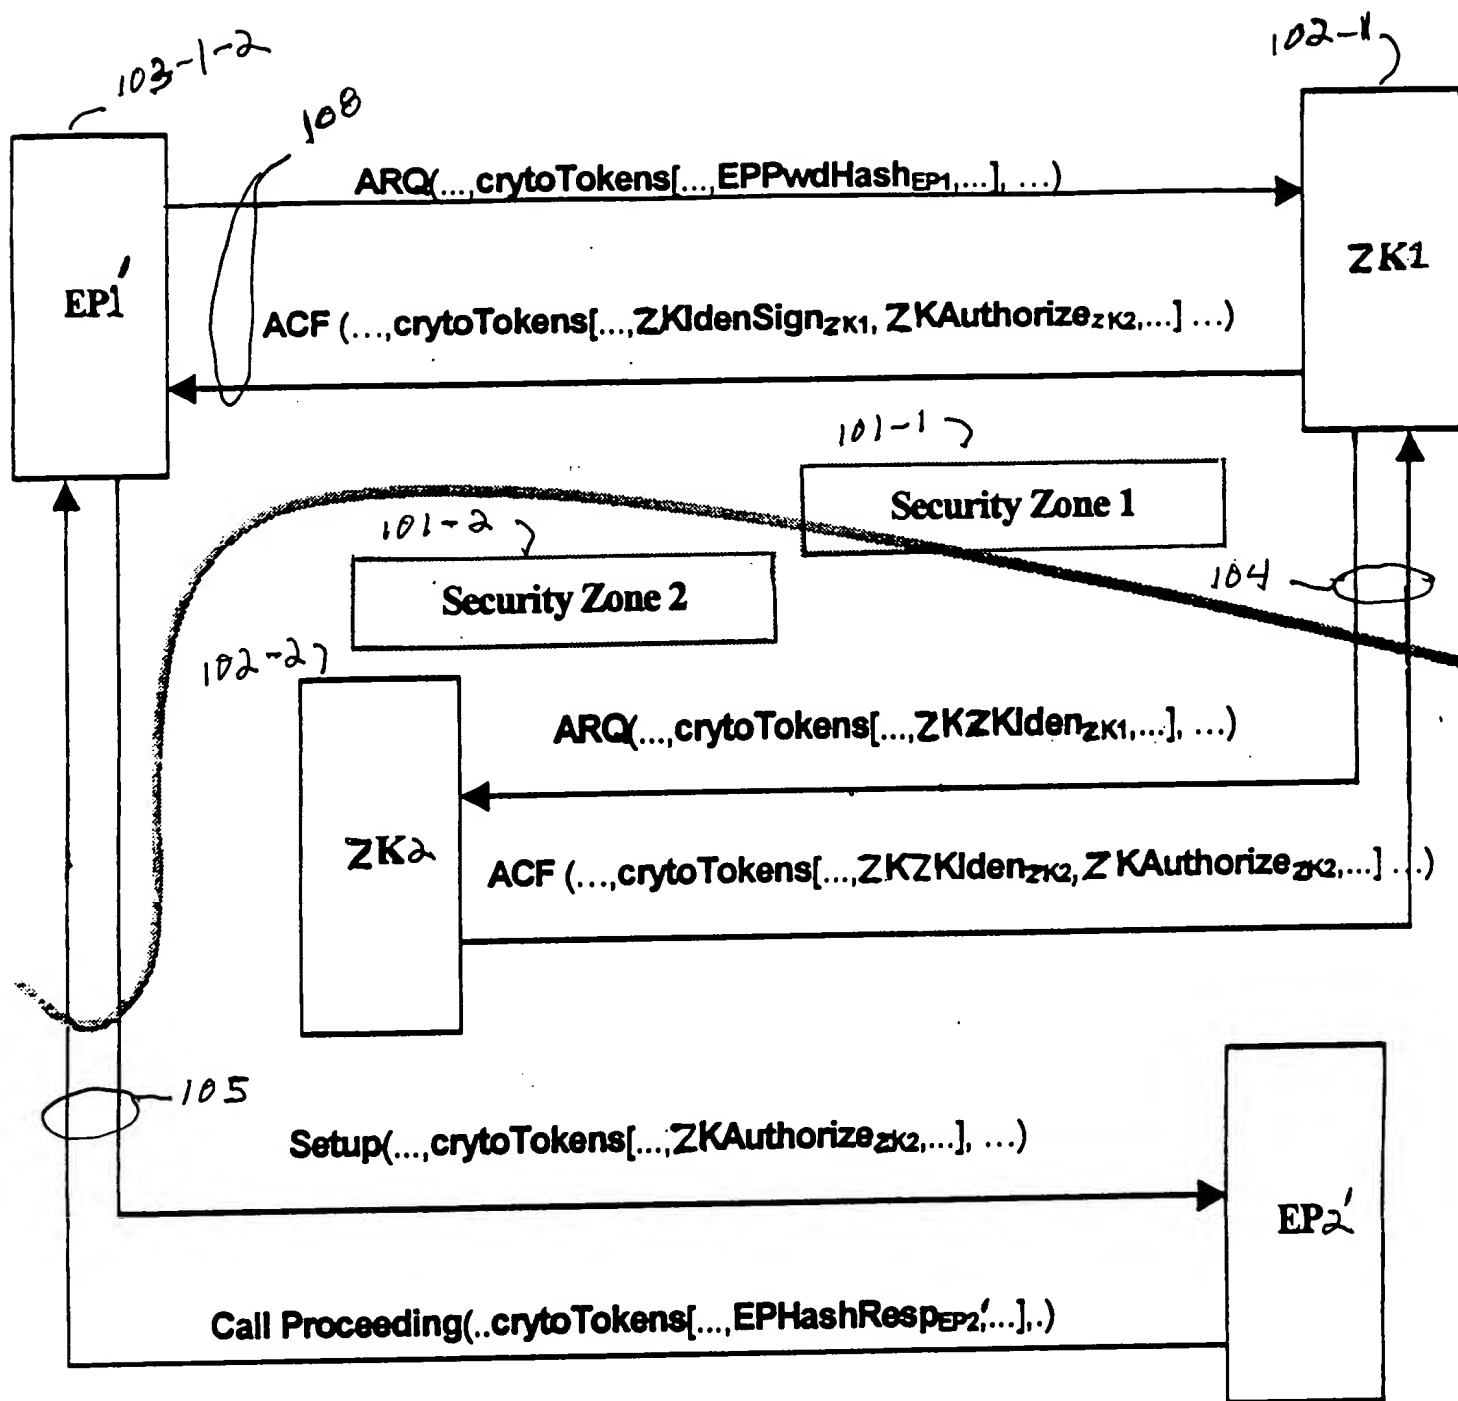 103-1-2
102-1
108
ARQ(...,crytoTokens[...,EPPwdHashEP1,...], ...)
EP1'
ZK1
ACF (...,crytoTokens[...,ZKIdenSignZK1, ZKAuthorizeZK2,...] ...)
101-1
Security Zone 1
101-2
104
Security Zone 2
102-2
ARQ(...,crytoTokens[...,ZKZKIdenZK1,...], ...)
ZK2
ACF (...,crytoTokens[...,ZKZKIdenZK2, ZKAuthorizeZK2,...] ...)
105
Setup(...,crytoTokens[...,ZKAuthorizeZK2,...], ...)
EP2'
Call Proceeding(..crytoTokens[...,EPHashRespEP2',...],.)